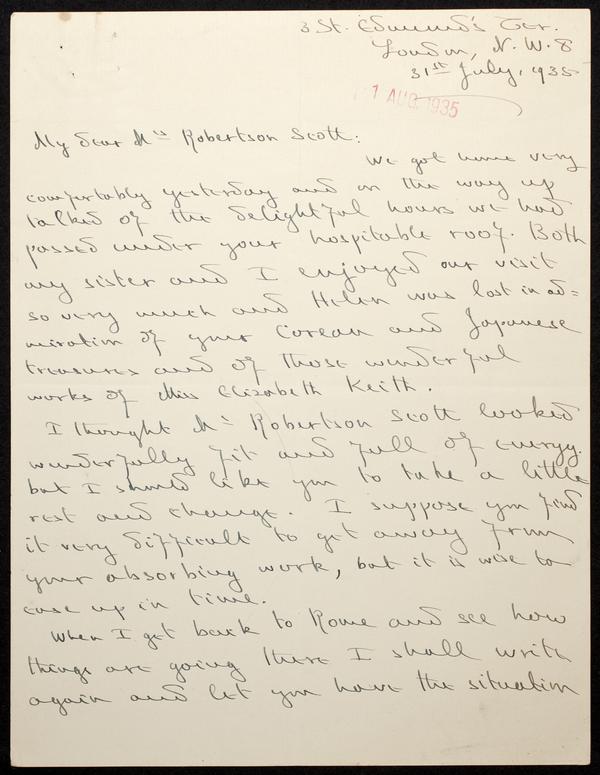 3 St. Edmund's Ter.
London, N.W. 8
31st July, 1935
1 AUG 1935
My dear Mrs Robertson Scott:
We got home very
comfortably yesterday and on the way up
talked of the delightful hours we had
passed under your hospitable roof. Both
my sister and I enjoyed our visit
so very much and Helen was lost in ad=
miration of your Corean and Japanese
treasures and of those wonderful
works of Miss Elizabeth Keith.
I thought Mr Robertson Scott looked
wonderfully fit and full of energy.
but I should like you to take a little
rest and change. I suppose you find
it very difficult to get away from
your absorbing work, but it is wise to
ease up in time.
When I get back to Rome and see how
things are going there I shall write
again and let you have the situation